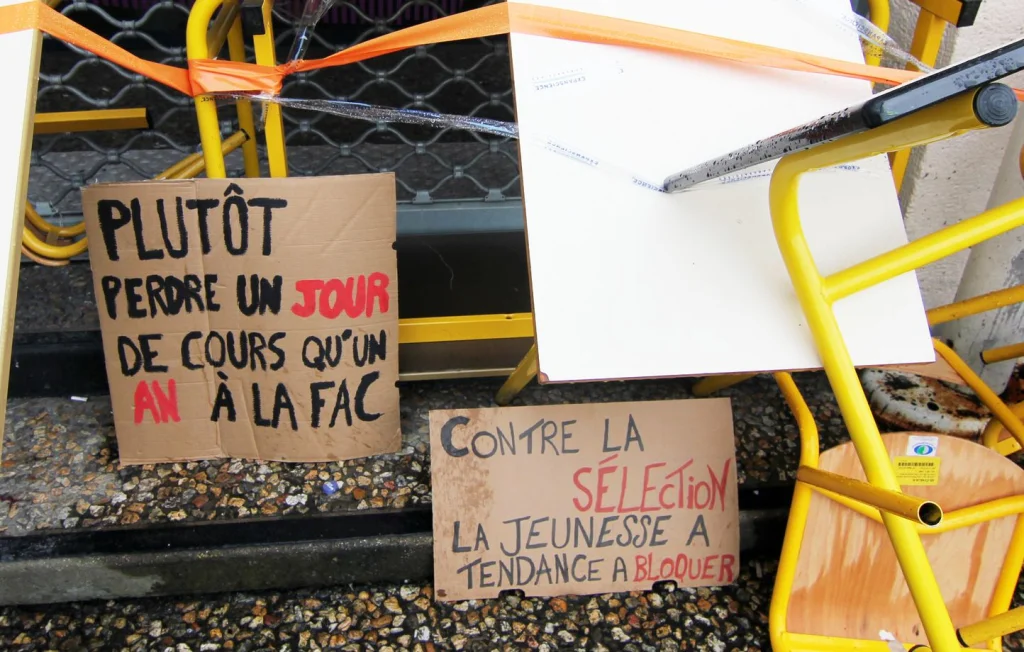 PLUTÔT
PERDRE UN JOUR
DE COURS QU'UN
AN À LA FAC
CONTRE LA
SÉLECTION
LA JEUNESSE A
TENDANCE A BLOQUER
EXPANSCIENCE